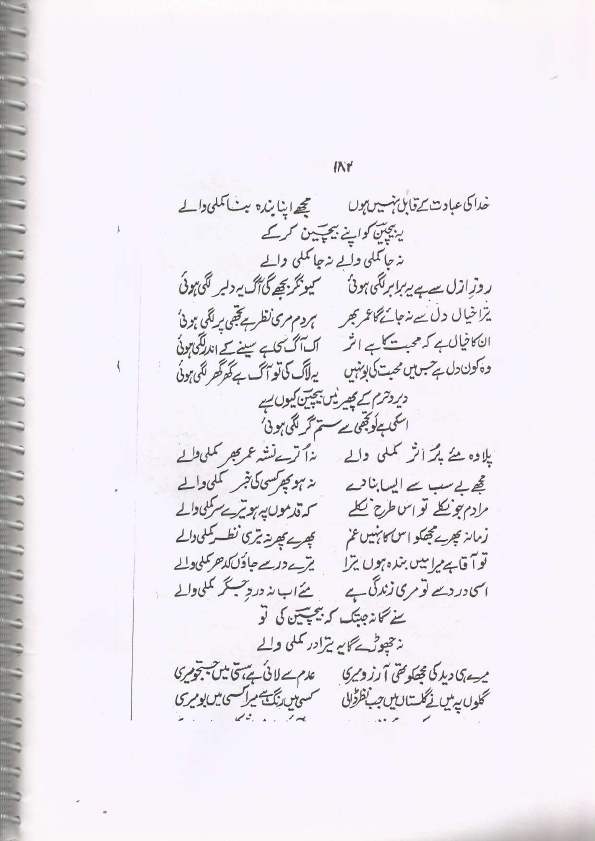 ۱۸۲
خدا کی عبادت کے قابل نہیں ہوں مجھے اپنا بندہ بنا کملی والے
یہ بیچینؔ کو اپنے بیچین کر کے
نہ جا کملی والے نہ جا کملی والے
روزِ ازل سے ہے یہ برابر لگی ہوئی کیونکر بجھے گی آگ یہ دلبر لگی ہوئی
ترا خیال دل سے نہ جائے گا عمر بھر ہر دم مری نظر ہے تجھی پر لگی ہوئی
ان کا خیال ہے کہ محبت کا ہے اثر اک آگ سی ہے سینے کے اندر لگی ہوئی
وہ کون دل ہے جس میں محبت کی بو نہیں یہ لاگ کی تو آگ ہے گھر گھر لگی ہوئی
دیر و حرم کے پھیر میں بیچینؔ کیوں رہے
اسکی ہے لو تجھی سے ستم گر لگی ہوئی
پلا وہ مئے پُر اثر کملی والے نہ اُترے نشہ عمر بھر کملی والے
مجھے بے سبب سے ایسا بنا دے نہ ہو پھر کسی کی خبر کملی والے
مرا دم جو نکلے تو اس طرح نکلے کہ قدموں پہ ہو تیرے سر کملی والے
زمانہ پھرے مجھکو اس کا نہیں غم پھرے پھر نہ تیری نظر کملی والے
تو آقا ہے میرا میں بندہ ہوں ترا ترے در سے جاؤں کدھر کملی والے
اسی درد سے تو مری زندگی ہے مئے اب نہ دردِ جگر کملی والے
سنے گا نہ جبتک کہ بیچینؔ کی تو
نہ چھوڑے گا یہ ترا در کملی والے
میرے ہی دید کی مجھکو تھی آرزو میری عدم سے لائی ہے ہستی میں جستجو میری
گلوں پہ میں نے گلستاں میں جب نظر ڈالی کسی میں رنگ ہے میرا کسی میں بو میری